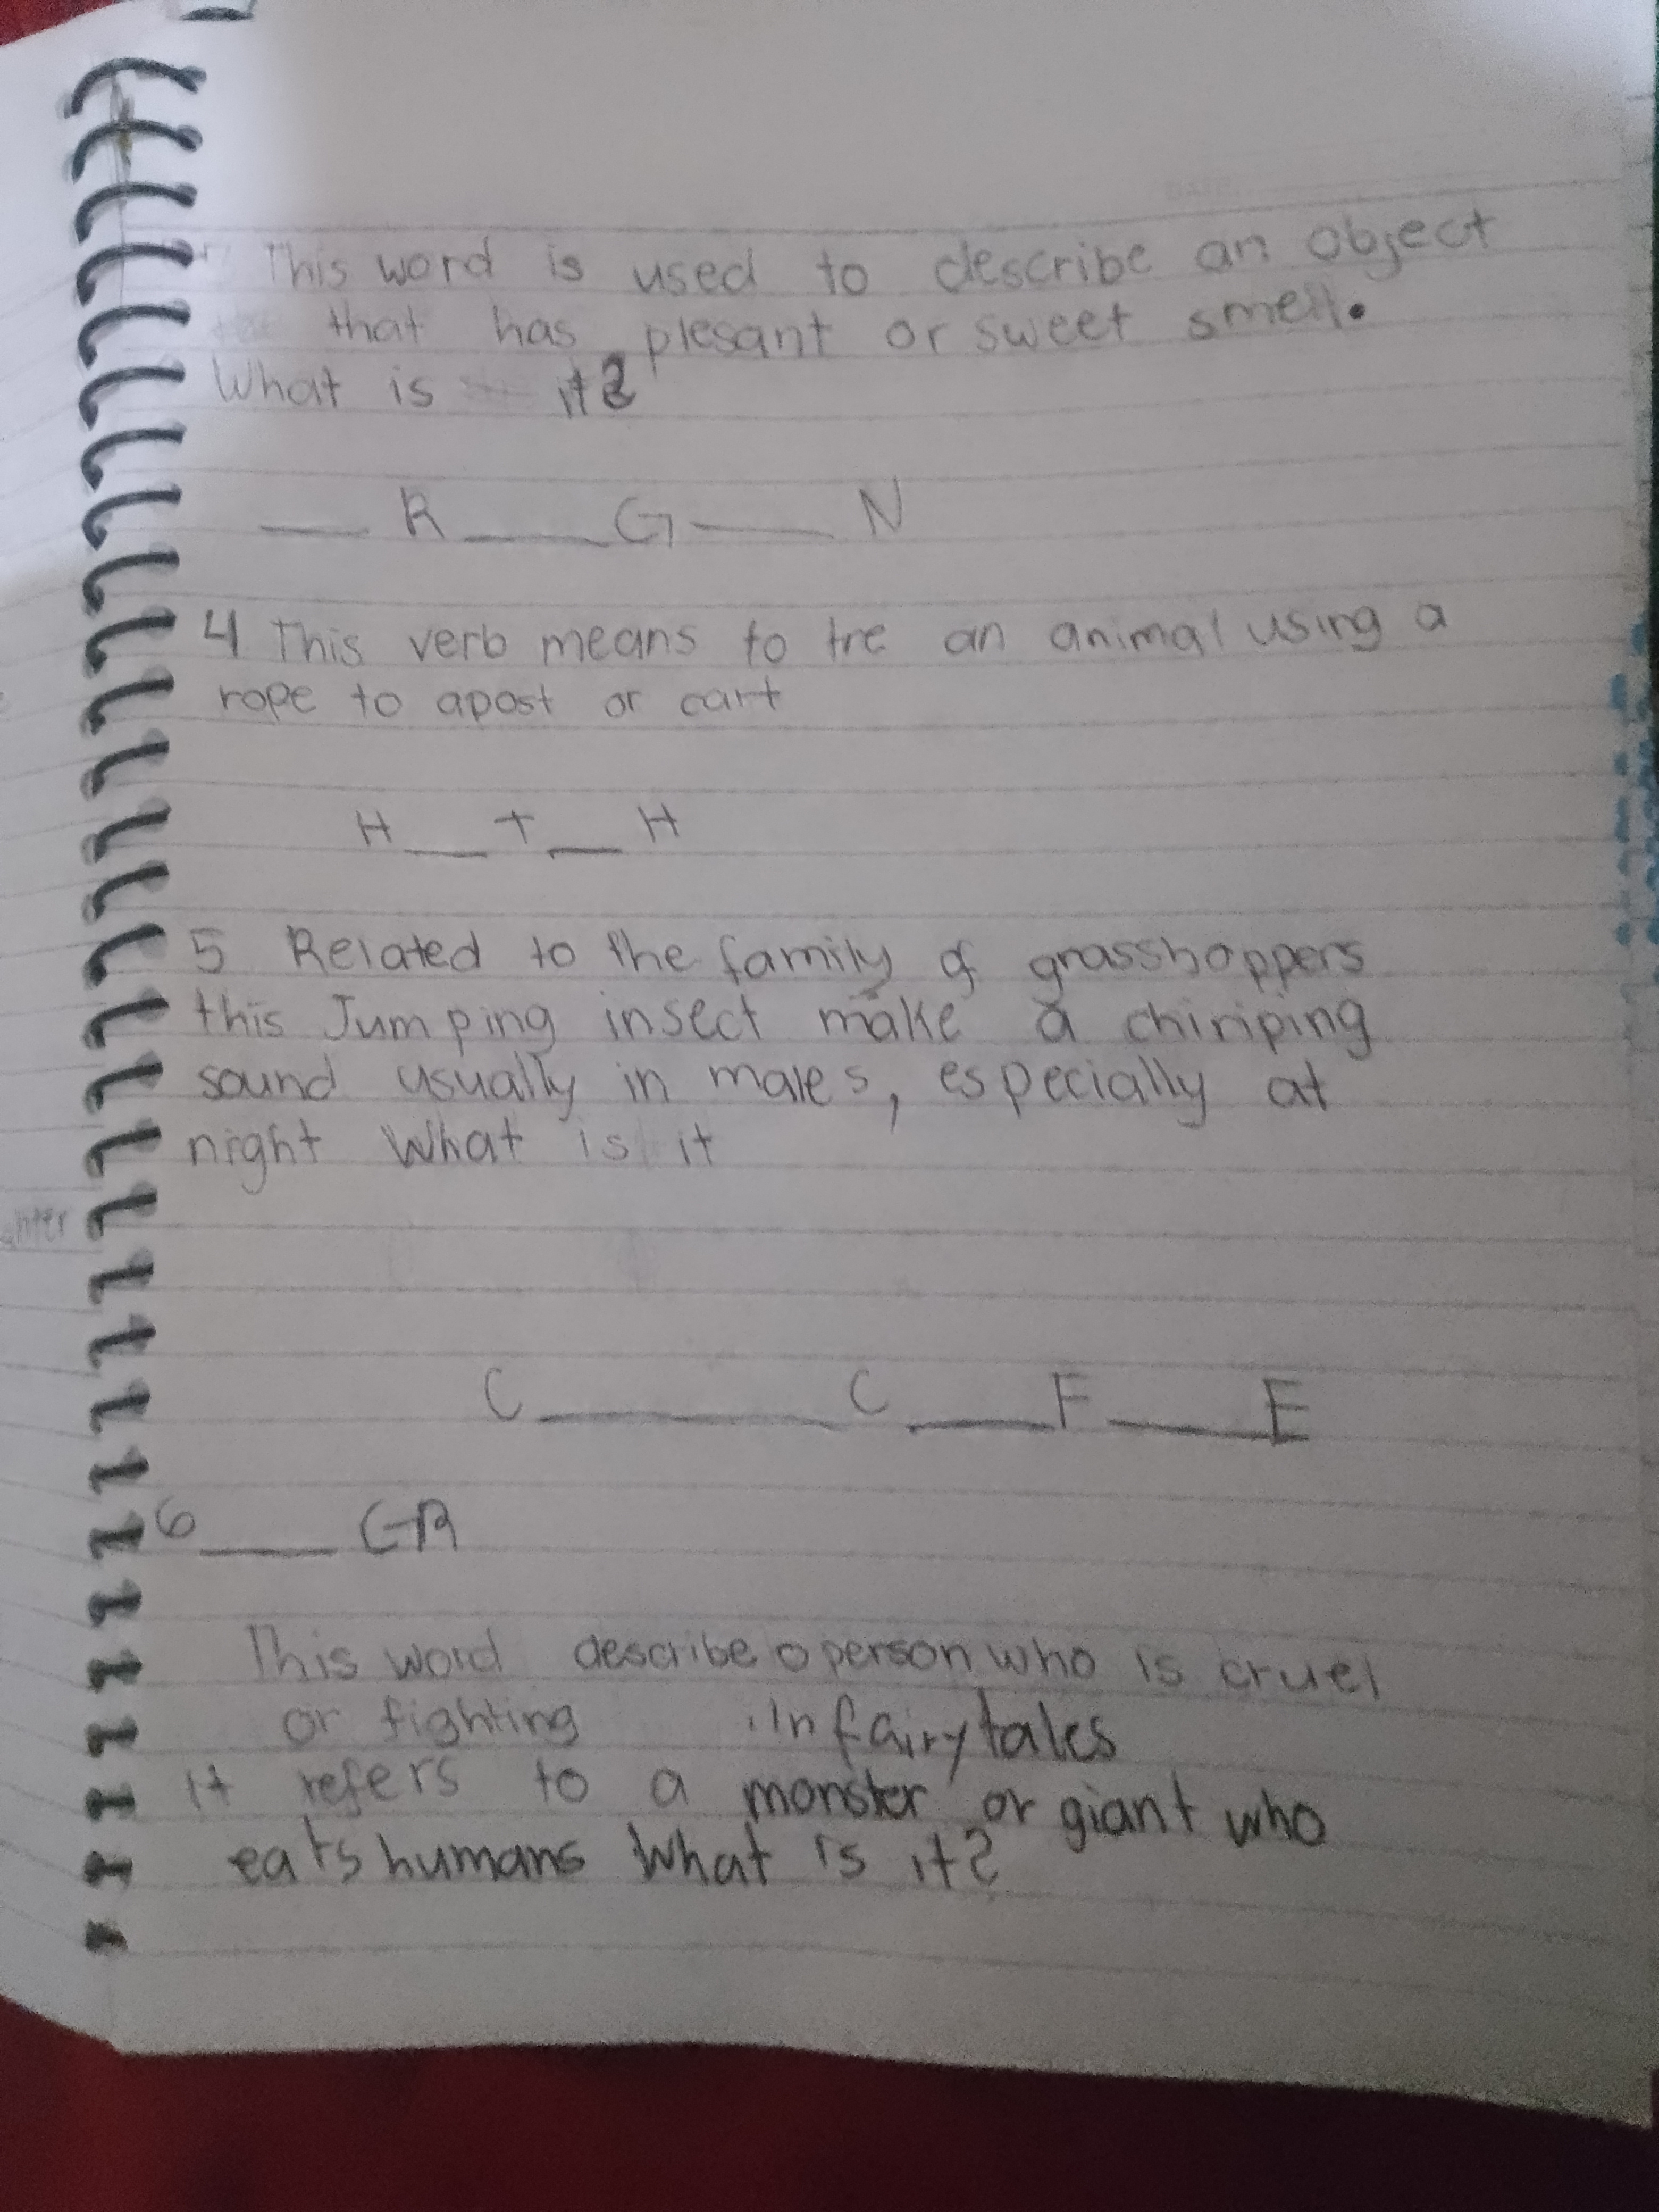 This word is used to describe an object
that has plesant or sweet smell.
What is it?
__ R __ G __ N
4 This verb means to tre an animal using a
rope to apost or cart
H __ T __ H
5 Related to the family of grasshoppers
this Jumping insect make a chiriping
sound usually in males, especially at
night What is it
C __ C __ F __ E
6 __ GR
This word describe o person who is cruel
or fighting In fairy tales
It refers to a monster or giant who
eats humans What is it?